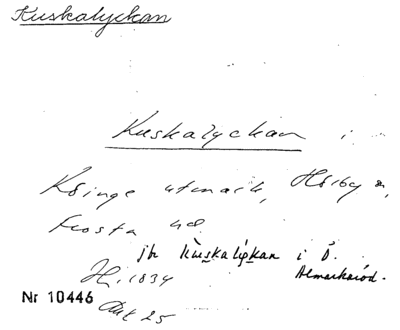 Kuskalyckan
Kuskalyckan i
Köinge utmark, Hörby s,
Frosta hd
jfr Kùskalýkan i Ö.
Almarkaröd.
H. 1834
Akt 25
Nr 10446